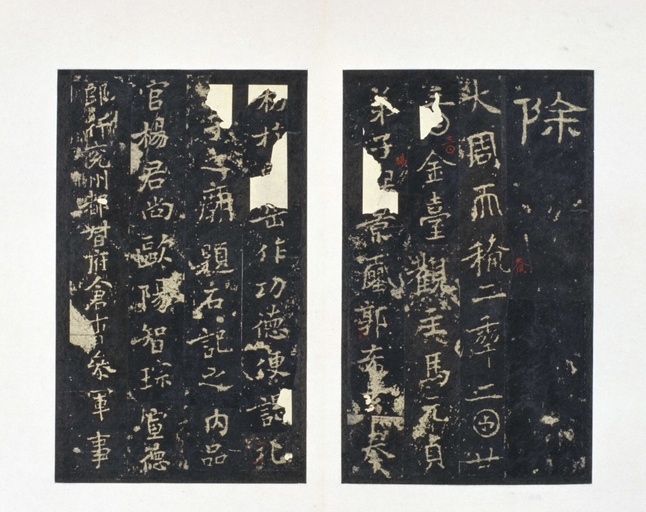 除
大周天授二年二月廿
金臺觀主馬元貞
弟子景郭奉
勑於岳作功德便謁孔
子之廟題石記之內品
官楊君尚歐陽智琮宣德
郎行兗州都督府倉曹參軍事